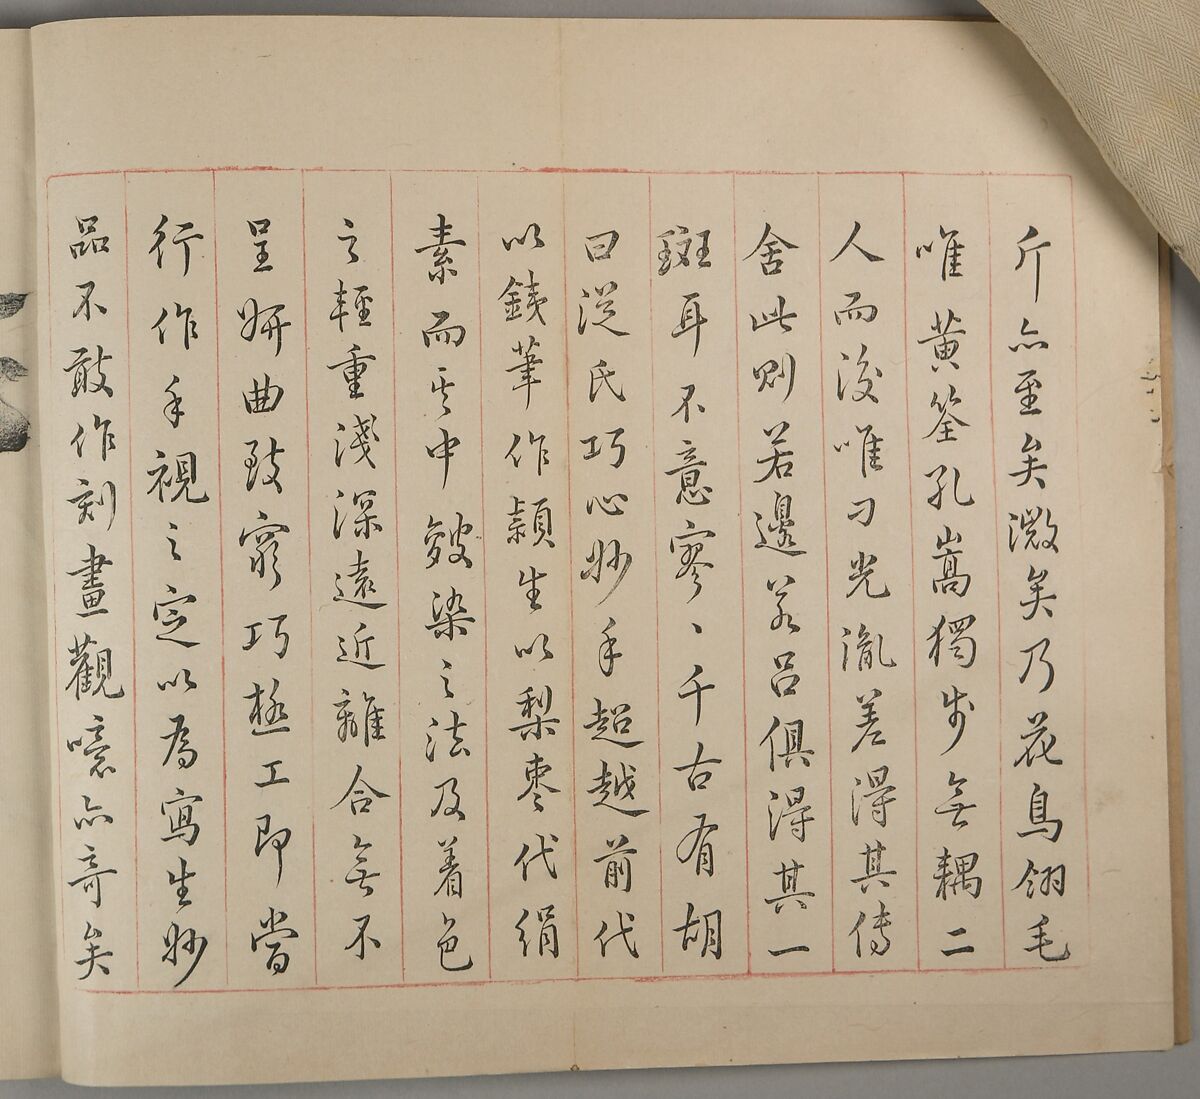 斤亦至矣微矣乃花鳥翎毛
唯黄筌孔嵩獨步無耦二
人而後唯刁光胤差得其傳
舍此則若邊若呂俱得其一
斑耳不意寥、千古有胡
曰從氏巧心妙手超越前代
以銕筆作穎生以梨棗代絹
素而其中皴染之法及着色
之輕重淺深遠近離合無不
呈妍曲致窮巧極工即當
行作手視之定以為寫生妙
品不敢作刻畫觀噫亦奇矣